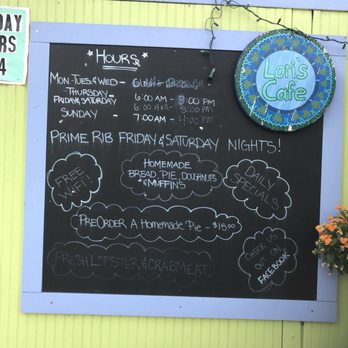 DAY
RS
4
★ HOURS ★
Lori's
Cafe
MON. TUES & WED -
THURSDAY - 6:00 AM - 8:00 PM
FRIDAY & SATURDAY - 6:00 AM - 8:00 PM
SUNDAY - 7:00 AM - 4:00 PM
PRIME RIB FRIDAY & SATURDAY NIGHTS!
FREE
WIFI
HOMEMADE
BREAD, PIE, DOUGHNUTS
& MUFFINS
DAILY
SPECIALS
PREORDER A HOMEMADE PIE - $15.00
FRESH LOBSTER & CRABMEAT
CHECK US
OUT ON
FACEBOOK